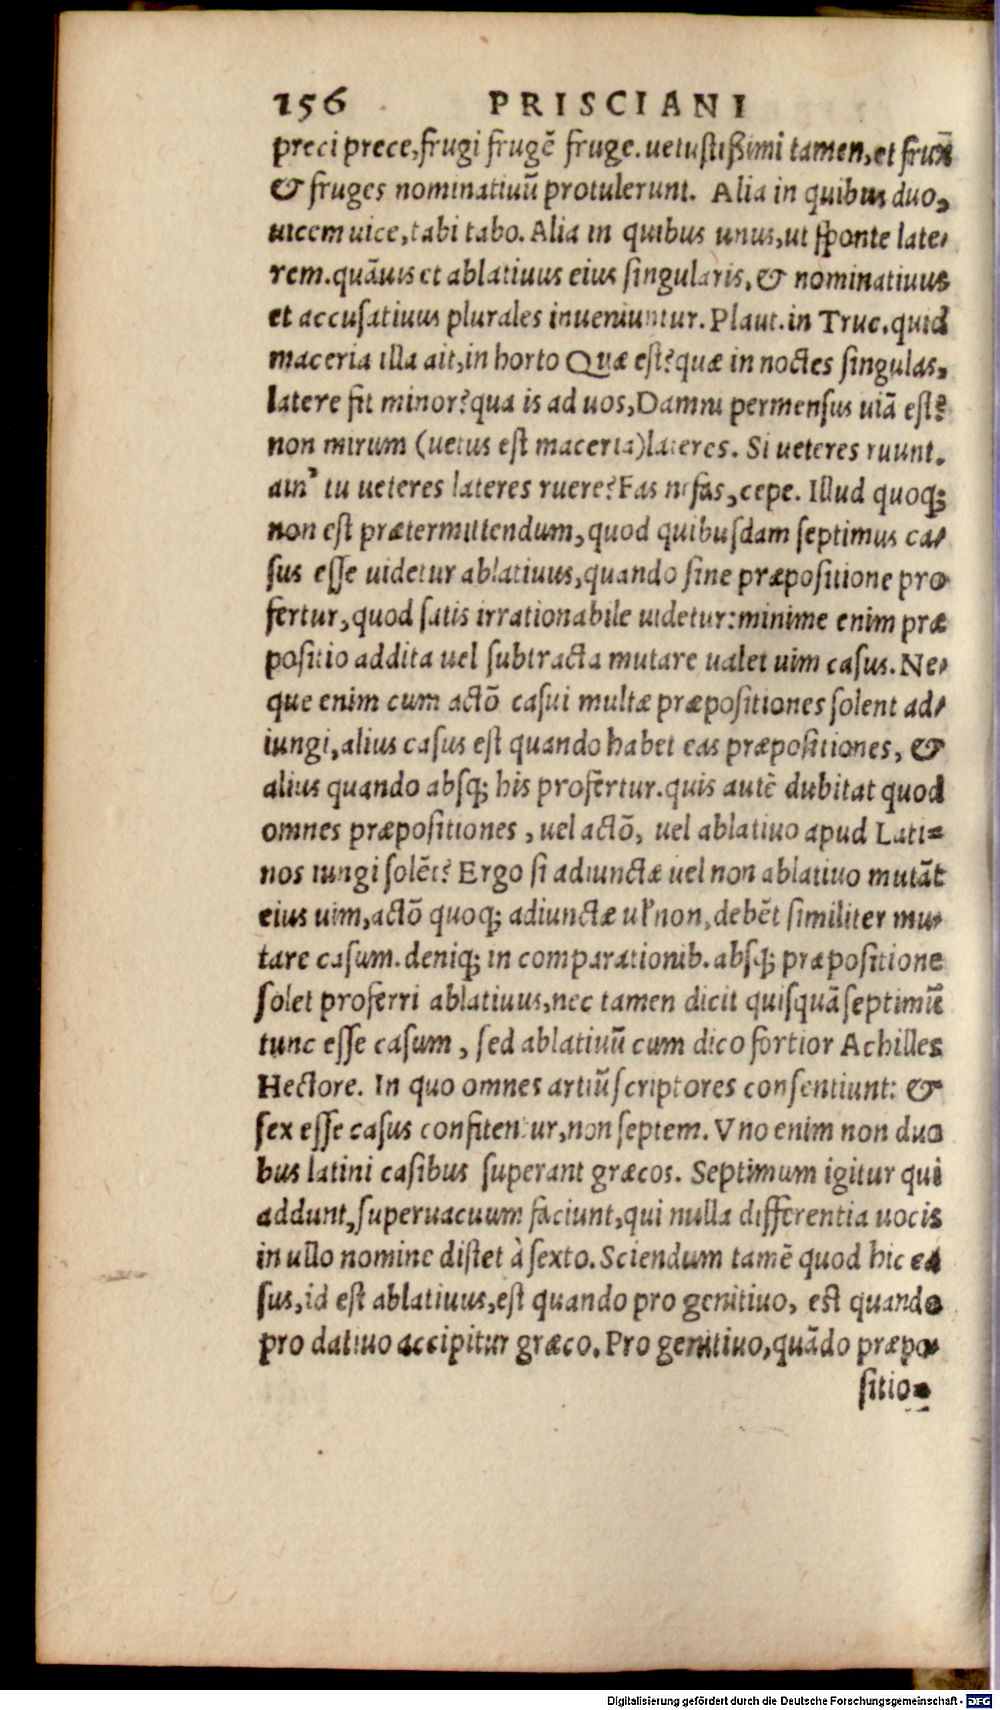 156 PRISCIANI
preci prece, frugi frugē fruge. uetustißimi tamen, et frux
& fruges nominatiuū protulerunt. Alia in quibus duo,
uicem uice, tabi tabo. Alia in quibus unus, ut sponte late-
rem. quāuis et ablatiuus eius singularis, & nominatiuus
et accusatiuus plurales inueniuntur. Plaut. in Truc. quid
maceria illa ait, in horto Quæ est? quæ in noctes singulas,
latere fit minor? qua is ad uos, Damni permensus uiā est?
non mirum (uetus est maceria) lateres. Si ueteres ruunt.
ain' tu ueteres lateres ruere? Fas nefas, cepe. Illud quoq;
non est prætermittendum, quod quibusdam septimus ca-
sus esse uidetur ablatiuus, quando sine præpositione pro-
fertur, quod satis irrationabile uidetur: minime enim præ
positio addita uel subtracta mutare ualet uim casus. Ne-
que enim cum actō casui multæ præpositiones solent ad-
iungi, alius casus est quando habet eas præpositiones, &
alius quando absq; his profertur. quis autē dubitat quod
omnes præpositiones, uel actō, uel ablatiuo apud Lati-
nos iungi solēt? Ergo si adiunctæ uel non ablatiuo mutāt
eius uim, actō quoq; adiunctæ ul' non, debēt similiter mu-
tare casum. deniq; in comparationib. absq; præpositione
solet proferri ablatiuus, nec tamen dicit quisquā septimū
tunc esse casum, sed ablatiuū cum dico fortior Achilles
Hectore. In quo omnes artiū scriptores consentiunt: &
sex esse casus confitentur, non septem. Vno enim non duo
bus latini casibus superant græcos. Septimum igitur qui
addunt, superuacuum faciunt, qui nulla differentia uocis
in ullo nomine distet à sexto. Sciendum tamē quod hic ca
sus, id est ablatiuus, est quando pro genitiuo, est quando
pro datiuo accipitur græco. Pro genitiuo, quādo præpo-
sitio-
Digitalisierung gefördert durch die Deutsche Forschungsgemeinschaft - DFG